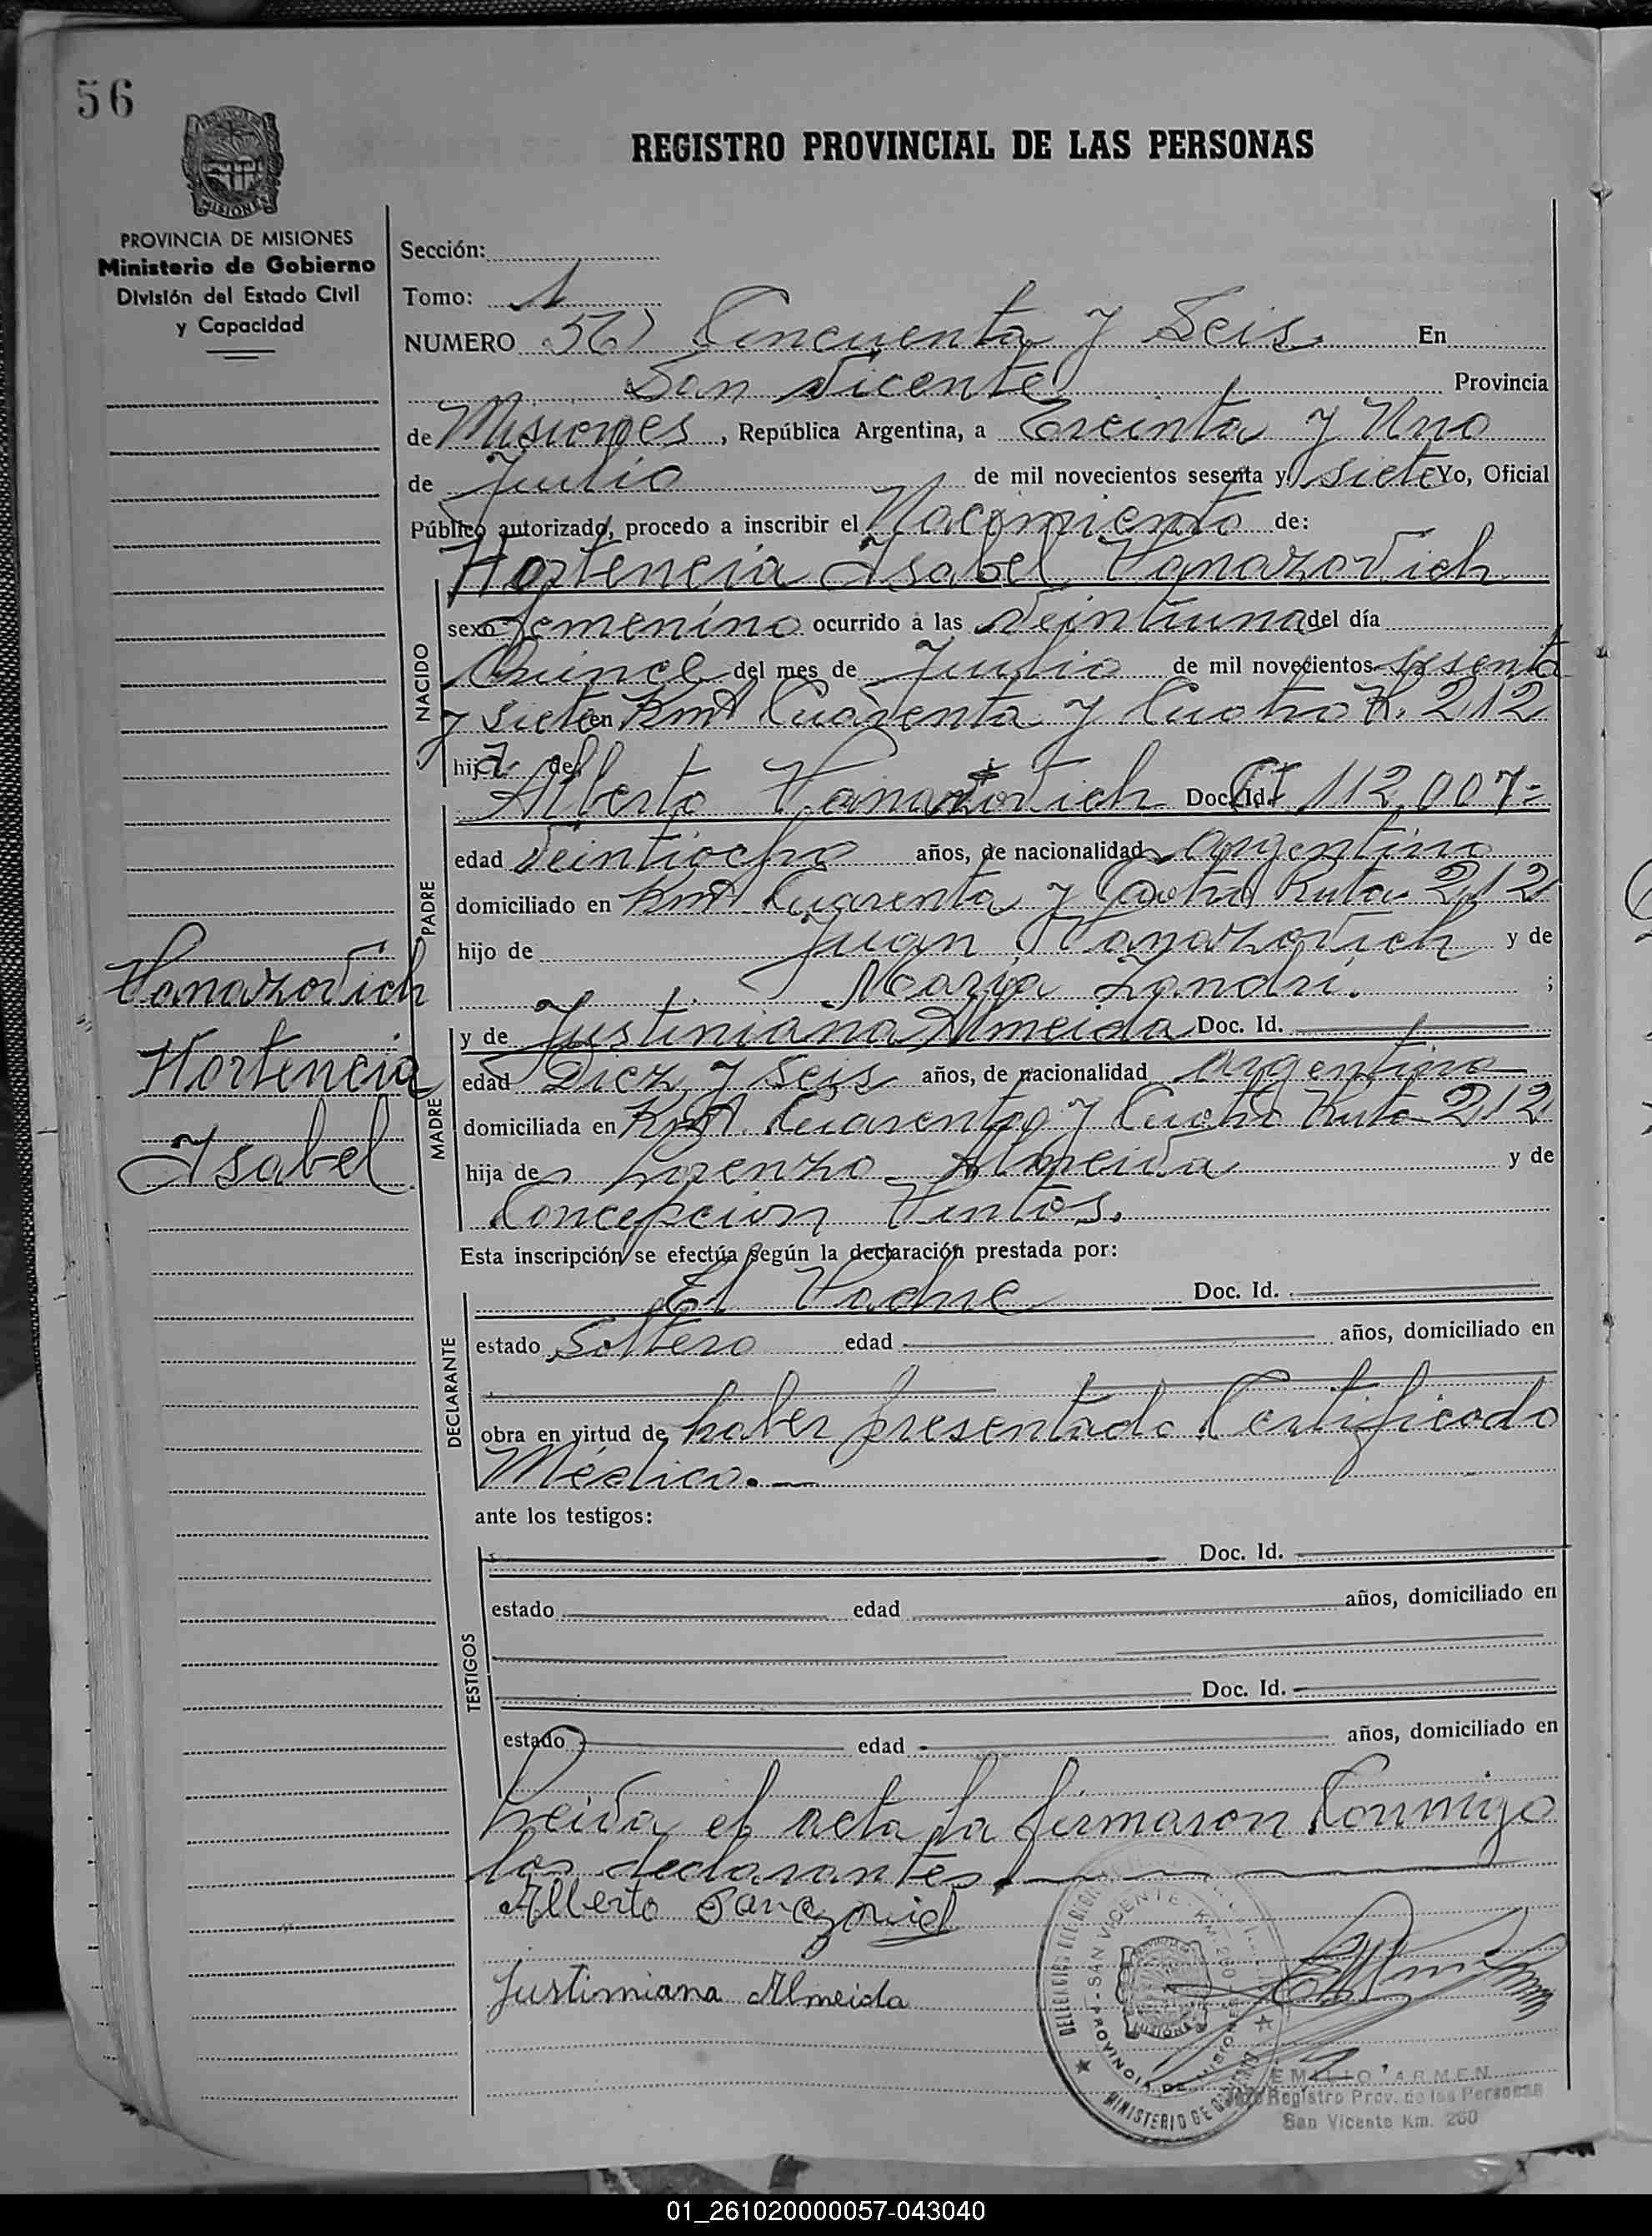 56
REGISTRO PROVINCIAL DE LAS PERSONAS
MISIONES
PROVINCIA DE MISIONES
Ministerio de Gobierno
División del Estado Civil
y Capacidad
Sección:
Tomo: 1
NUMERO 56) Cincuenta y Seis En
San Vicente Provincia
de Misiones, República Argentina, a Treinta y Uno
de Julio de mil novecientos sesenta y siete Yo, Oficial
Público autorizado, procedo a inscribir el Nacimiento de:
Hortencia Isabel Panazovich
NACIDO
sexo femenino ocurrido a las Veintiuna del día
Quince del mes de Julio de mil novecientos sesenta
y siete en Km Cuarenta y Cuatro R. 212
hija de
PADRE
Alberto Panazovich Doc. Id. CI 112.007=
edad Veintiocho años, de nacionalidad argentino
domiciliado en Km Cuarenta y Cuatro Ruta 212
hijo de Juan Panazovich y de
Maria Zandri. ;
Panazovich
Hortencia
Isabel.
MADRE
y de Justiniana Almeida Doc. Id.
edad Diez y Seis años, de nacionalidad argentina
domiciliada en Km. Cuarenta y Cuatro Ruta 212
hija de Lorenzo Almeida y de
Concepcion Pintos.
Esta inscripción se efectúa según la declaración prestada por:
DECLARANTE
El Padre Doc. Id.
estado Soltero edad años, domiciliado en
obra en virtud de haber presentado Certificado
Médico.
ante los testigos:
TESTIGOS
Doc. Id.
estado edad años, domiciliado en
Doc. Id.
estado edad años, domiciliado en
Leida el acta la firmaron Conmigo
los declarantes.
Alberto Panazovich
Justimiana Almeida
SAN VICENTE - KM. 260
PROVINCIA DE MISIONES
MINISTERIO DE GOBIERNO
EMILIO ARMEN
Jefe Registro Prov. de las Personas
San Vicente Km. 260
01_261020000057-043040